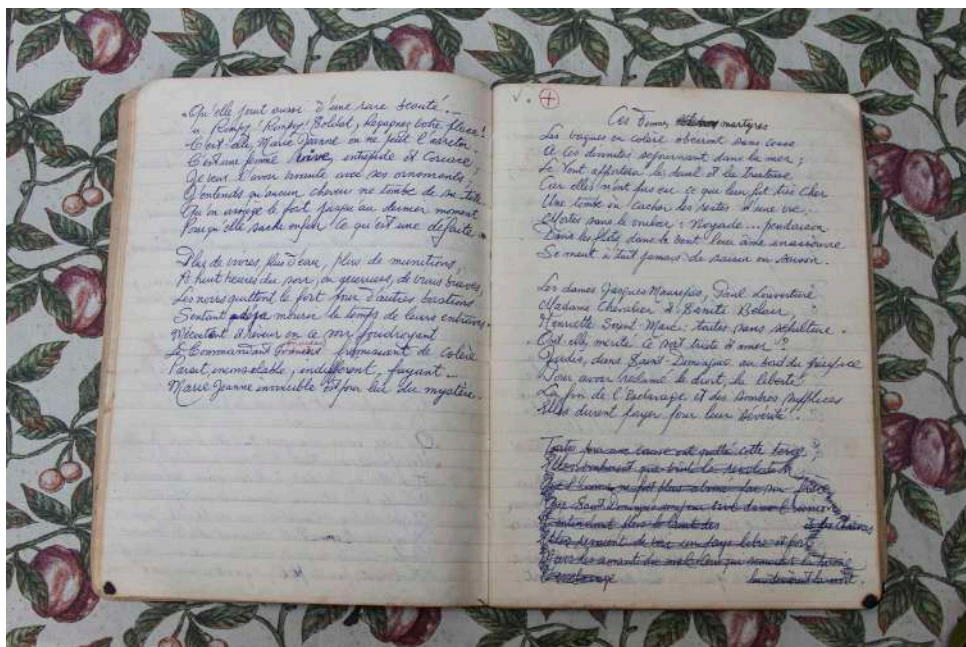 Qu'elle jouit aussi d'une rare beauté...
" Rompez! Rompez! Soldat, Regagnez votre place!
C'est elle, Marie Jeanne on ne peut l'arrêter.
C'est une femme intrépide et coriace
Je veux l'avoir avec ses ornements!
J'entends qu'aucun cheveu ne tombe de sa tête
Qu'on assiège le fort jusqu'au dernier moment
Pour qu'elle sache enfin ce qu'est une défaite.
Plus de vivres, plus d'eau, plus de munitions,
A huit heures du soir, en guerriers, de vrais braves,
Les noirs quittent le fort pour d'autres
Sentant déjà mourir le temps de leurs entraves.
en ce soir foudroyant
Le Commandant frémissant de colère
Paraît inconsolable, indifférent, fuyant...
Marie Jeanne invincible est pour lui du mystère.
V. +
Ces Dames martyres
Les vagues en colère obéiront sans cesse
A ces séjournant dans la mer;
Le Vent apportera le deuil et la tristesse
Car elles n'ont pas eu ce que leur fut très cher
Une tombe où cacher les restes d'une vie.
Mortes sans le vouloir: Noyade... pendaison
Dans les flots, dans le vent leur âme inassouvie
Se meut à tout jamais de saison en saison.
Les dames Jacques Maurepas, Paul Louverture
Madame Chevalier et Sanite Bélair,
Henriette Saint-Marc: toutes sans sépulture.
Ont-elles mérité ce sort triste et amer?
Jadis, dans Saint-Domingue au bord du précipice
Pour avoir réclamé le droit, la liberté
La fin de l'Esclavage et des sombres supplices
Elles durent payer pour leur sévérité.
Toutes pour une cause ont quitté cette terre
Elles
Que l'homme ne soit plus par son frère
Que Saint Domingue
plus le et des chaînes
Elles rêvaient de voir un pays libre et fort
Mais les
leur donnèrent la mort.